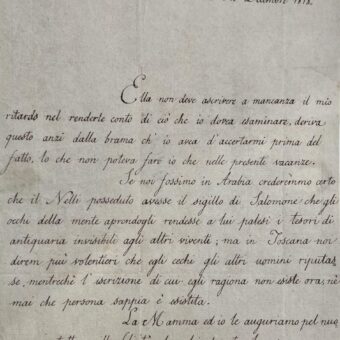 Ella non deve ascrivere a mancanza il mio
ritardo nel renderle conto di ciò che io dovea esaminare, deriva
questo anzi dalla brama ch' io avea d'accertarmi prima del
fatto, lo che non poteva fare io che nelle presenti vacanze.
Se noi fossimo in Arabia crederemmo certo
che il Nelli posseduto avesse il sigillo di Salomone che gli
occhi della mente aprendogli rendesse a lui palesi i tesori di
antiquaria invisibili agli altri viventi; ma in Toscana noi
direm più volentieri che egli cechi gli altri uomini riputas
se, mentrechè l' iscrizione di cui egli ragiona non esiste ora, nè
mai che persona sappia è esistita.
La Mamma ed io le auguriamo pel nuo